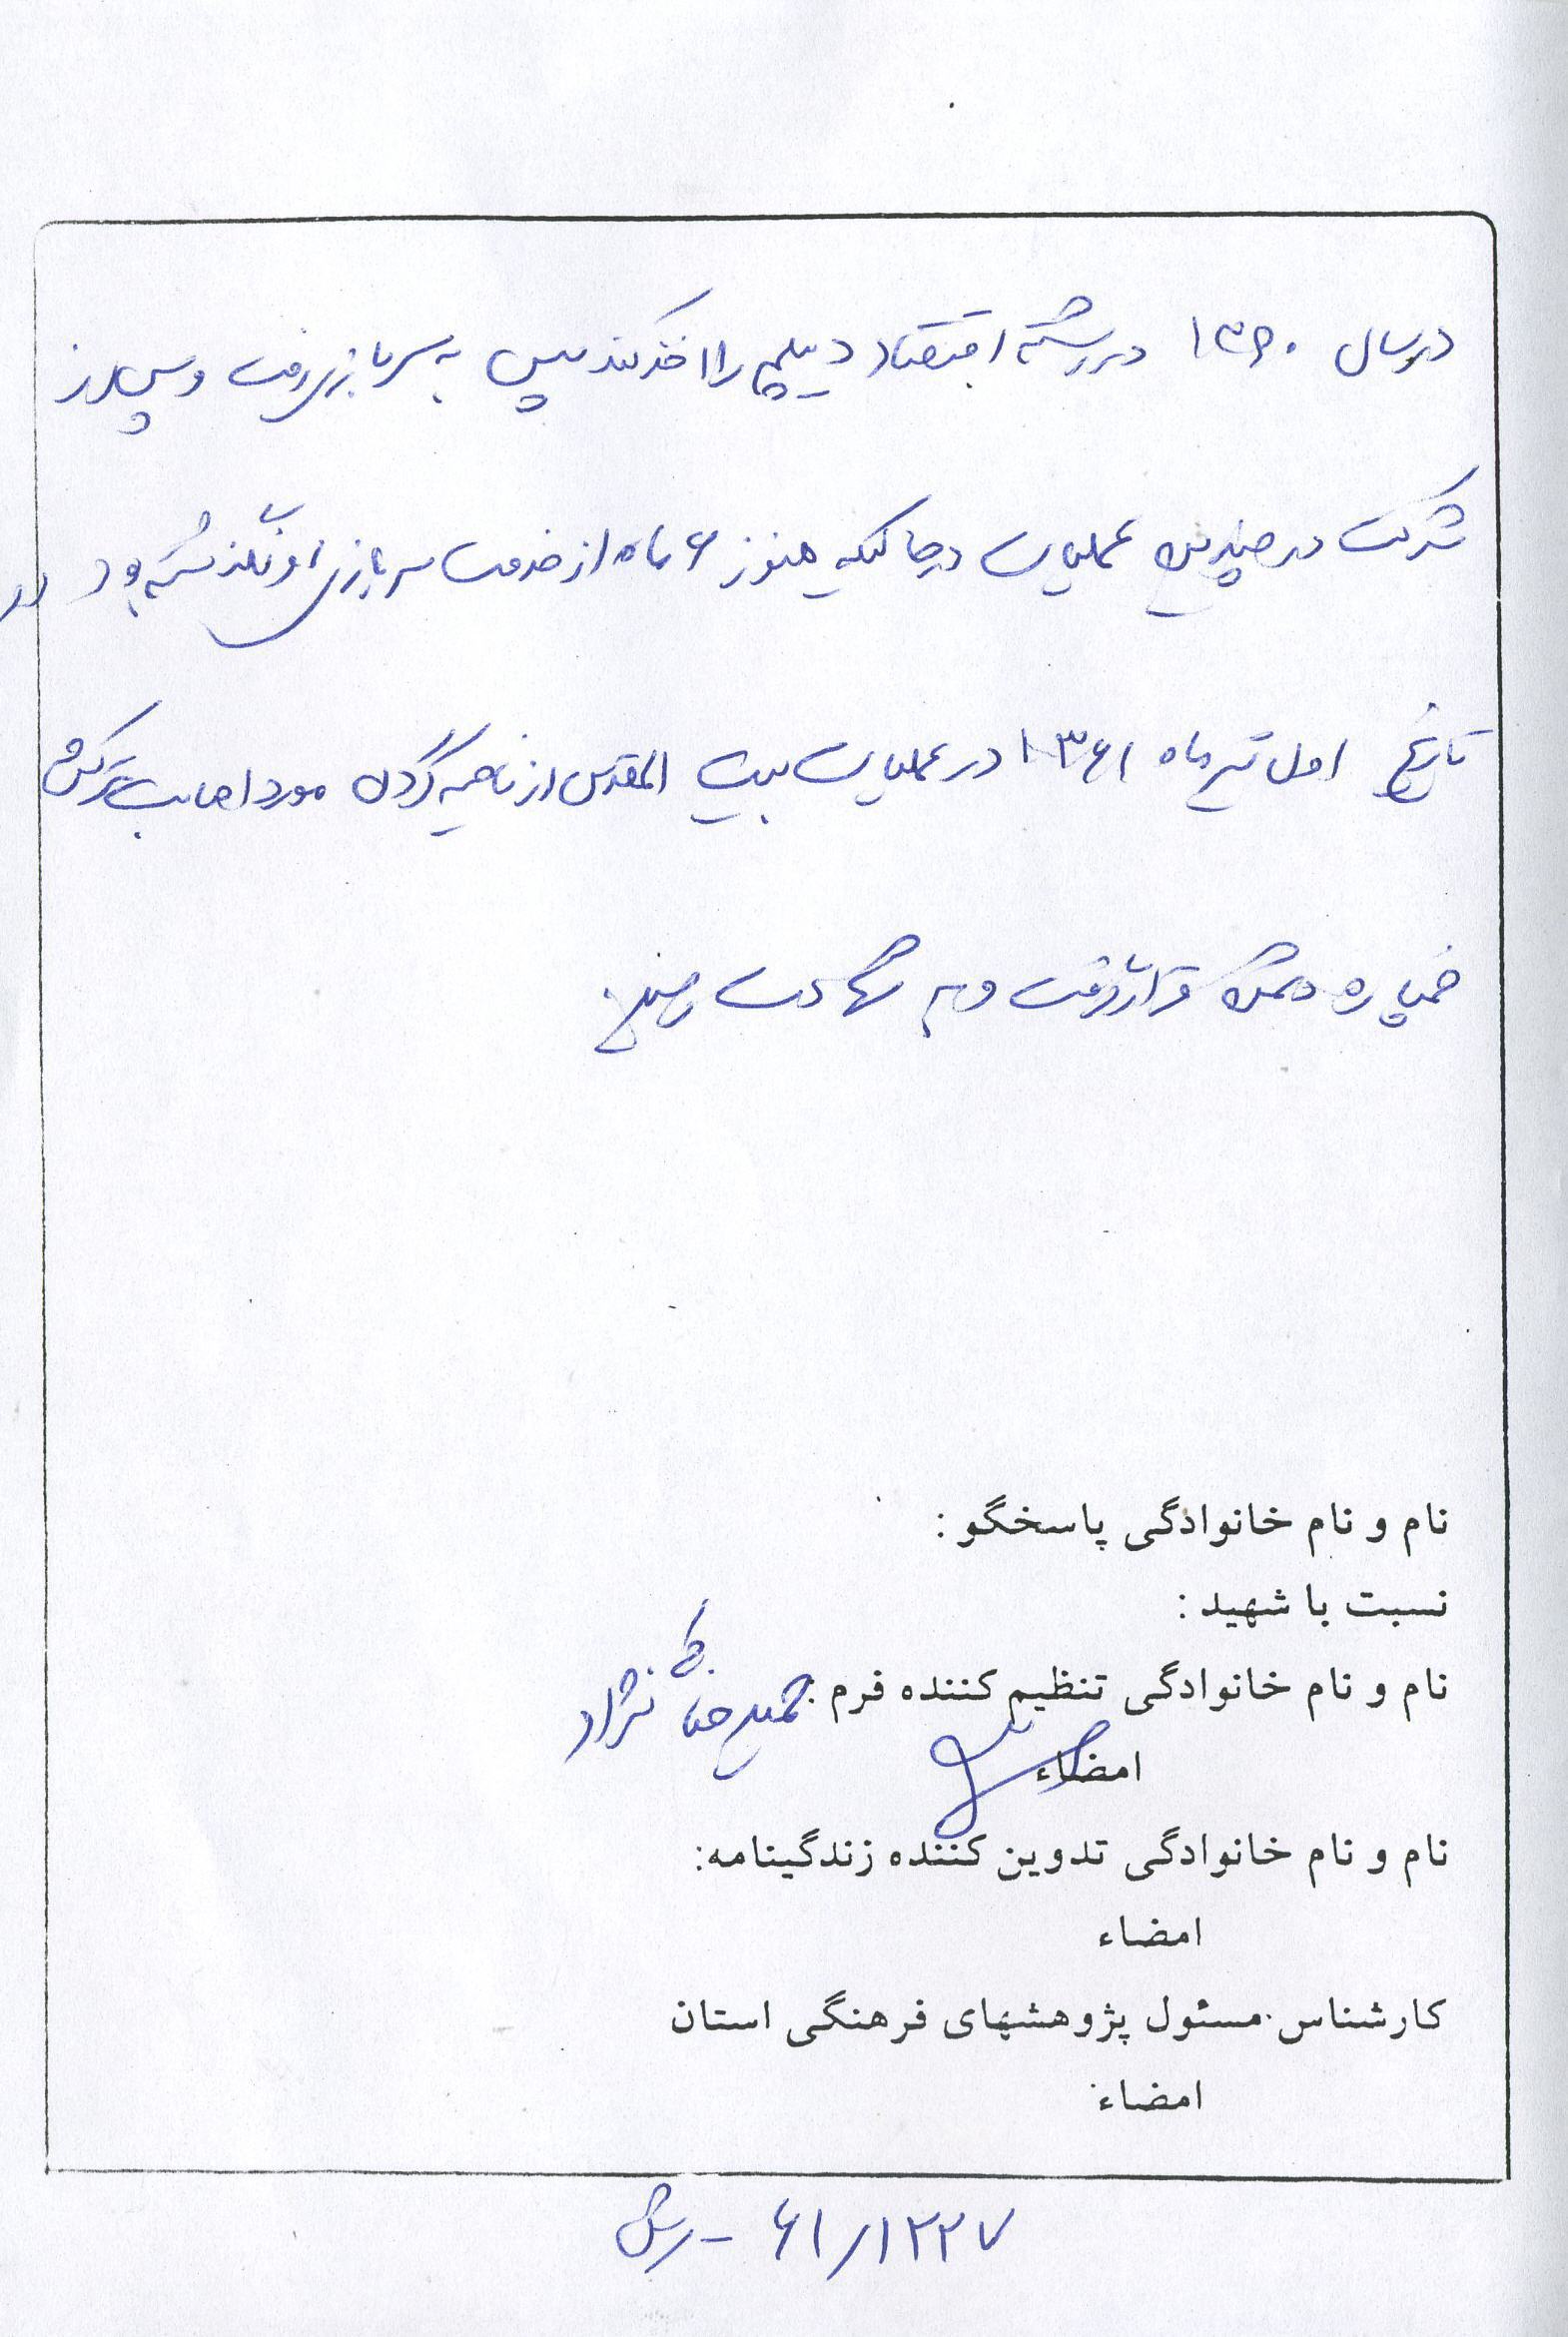 در سال ۱۳۶۰ در رشته اقتصاد دیپلم را اخذ کند سپس به سربازی رفت و پس از
شرکت در چندین عملیات در حالیکه هنوز ۶ ماه از خدمت سربازی او نگذشته بود در
تاریخ اول تیرماه ۱۳۶۱ در عملیات بیت المقدس از ناحیه گردن مورد اصابت ترکش
خمپاره دشمن قرار گرفت و به شهادت رسید.
نام و نام خانوادگی پاسخگو :
نسبت با شهید :
نام و نام خانوادگی تنظیم کننده فرم : نژاد
امضاء
نام و نام خانوادگی تدوین کننده زندگینامه:
امضاء
کارشناس مسئول پژوهشهای فرهنگی استان
امضاء
۶۱/۱۲۲۷ -